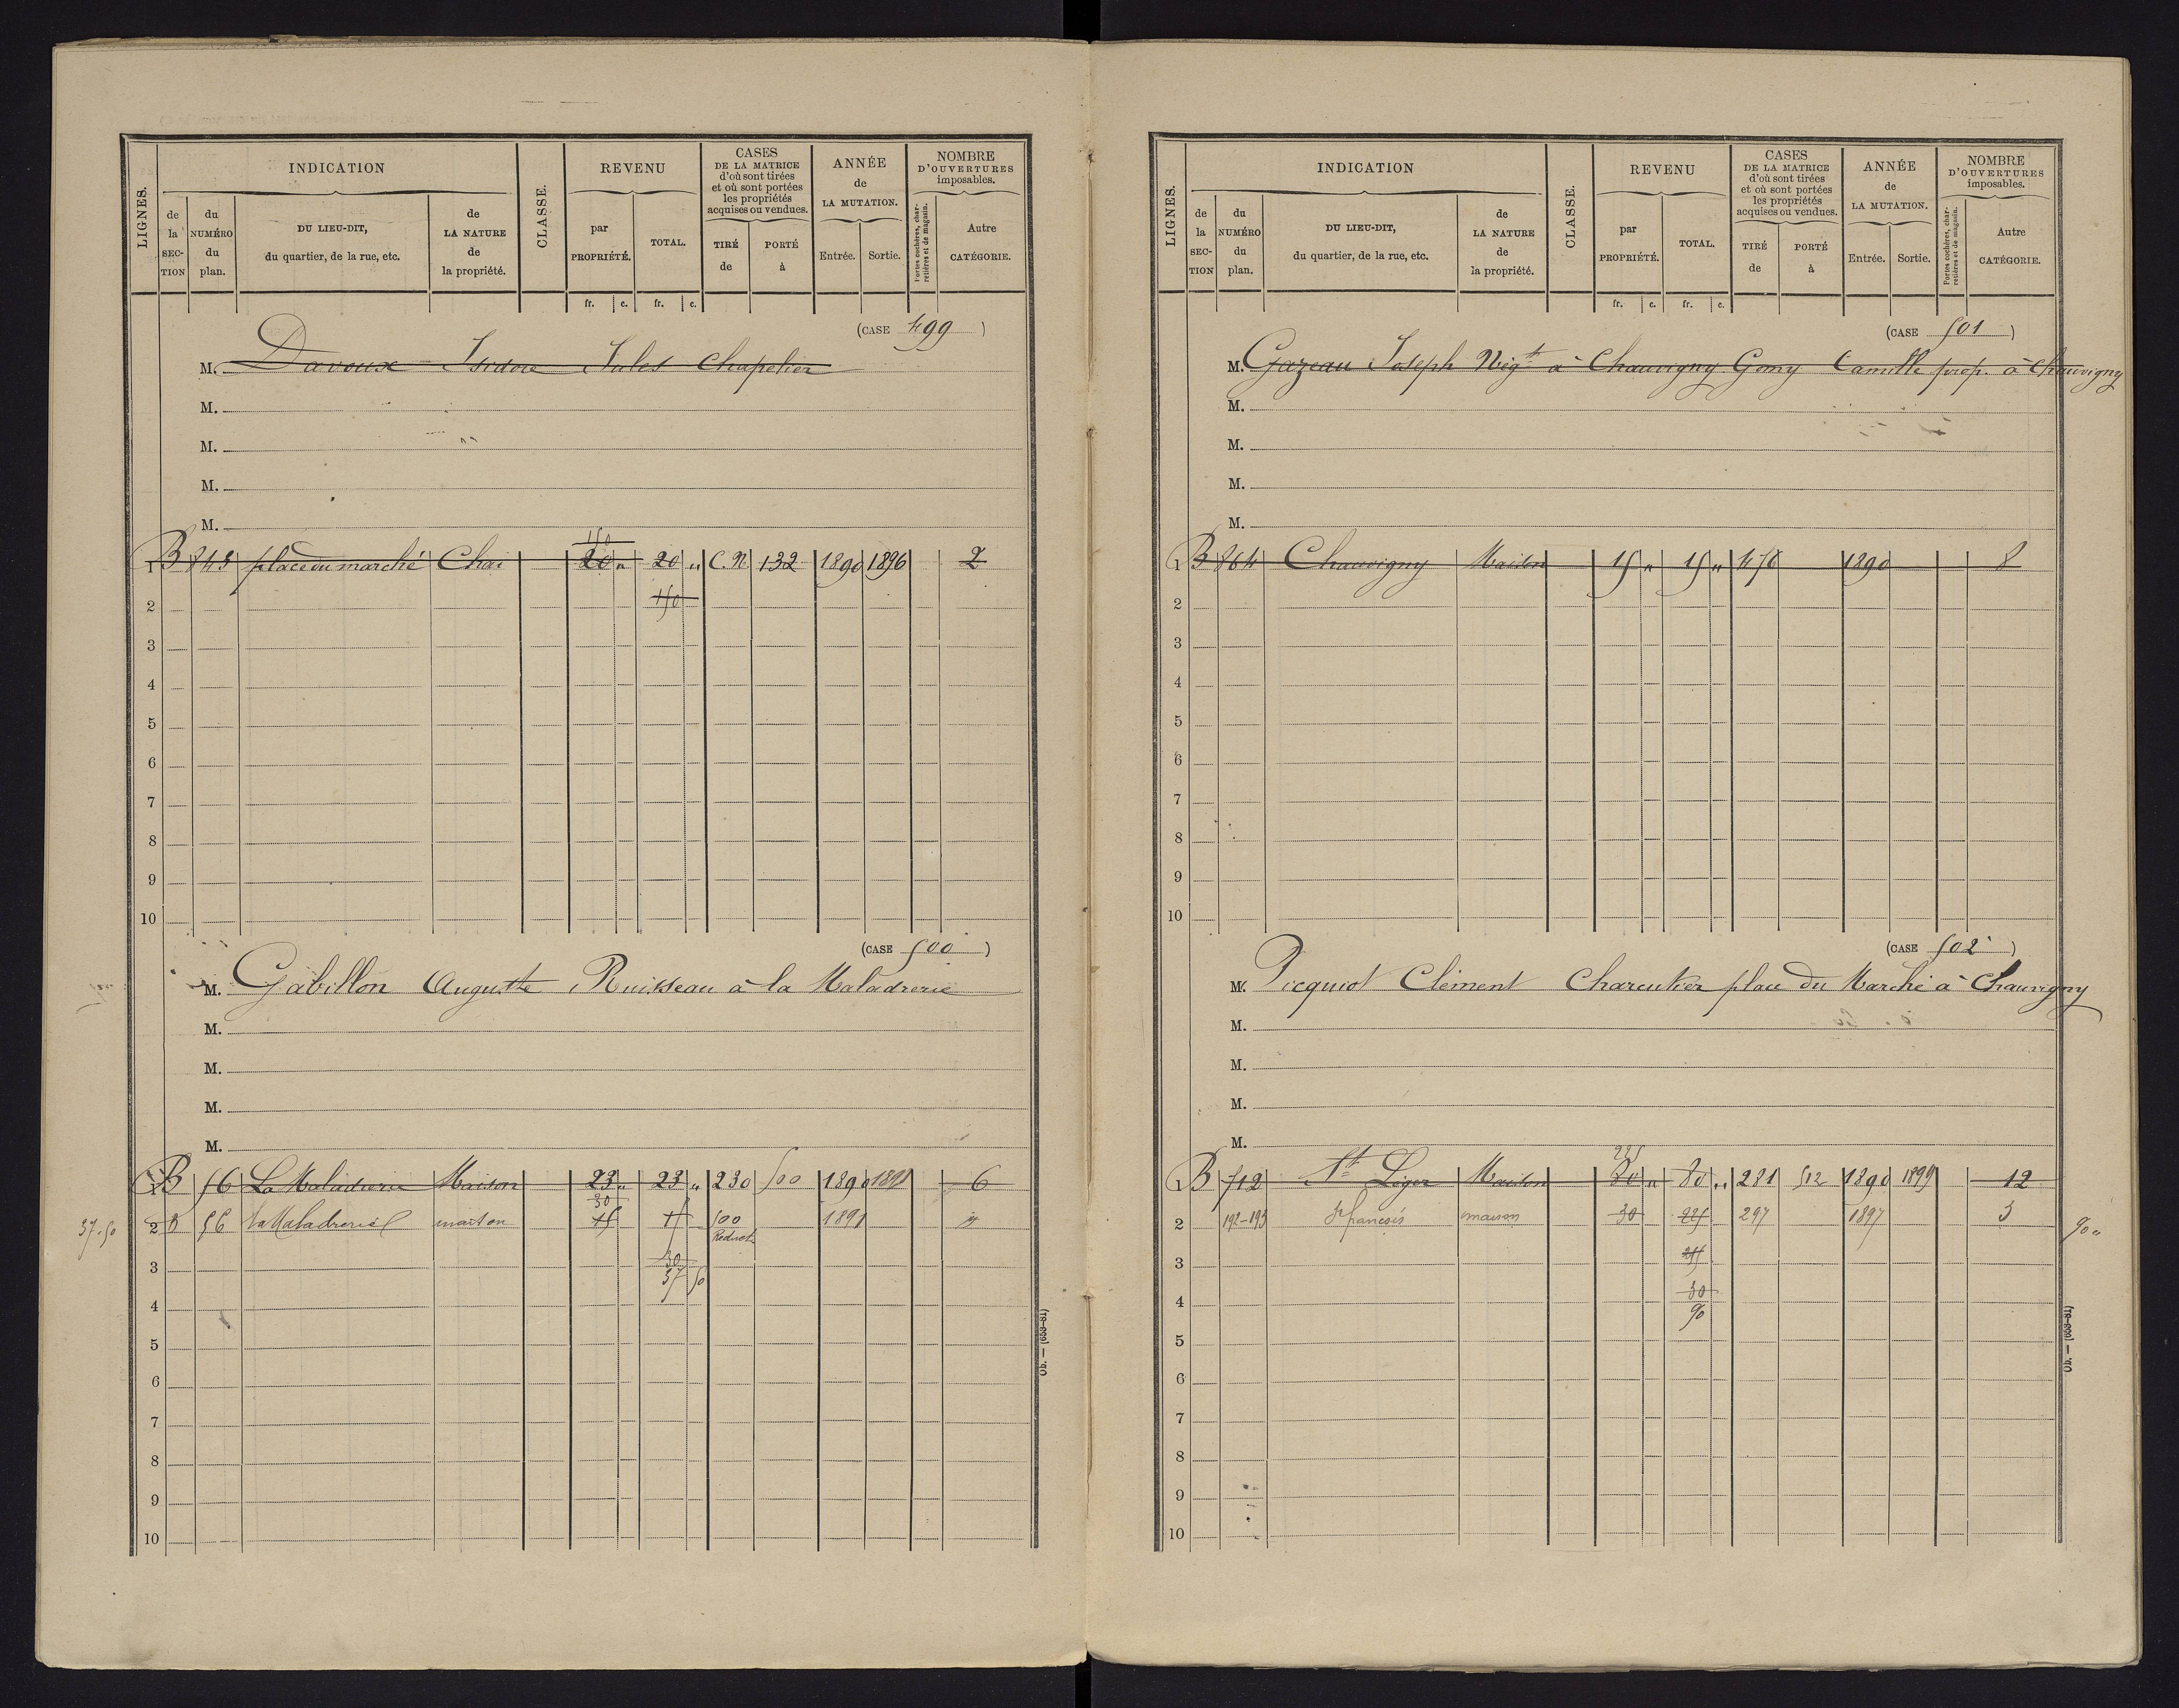 LIGNES.
INDICATION
de la SECTION
du NUMÉRO du plan.
DU LIEU-DIT, du quartier, de la rue, etc.
de LA NATURE de la propriété.
CLASSE.
REVENU
par PROPRIÉTÉ.
TOTAL.
CASES DE LA MATRICE d'où sont tirées et où sont portées les propriétés acquises ou vendues.
TIRÉ de
PORTÉ à
ANNÉE de LA MUTATION.
Entrée.
Sortie.
NOMBRE D'OUVERTURES imposables.
Portes cochères, charretières et de magasin.
Autre CATÉGORIE.
fr. c. fr. c.
(CASE 499)
M. Davoux Isidore Jules Chapelier
M.
M.
M.
M.
150
1 B 845 place du marché Chai 20 " 20 " C.N 132 1890 1896 2
2 150
3
4
5
6
7
8
9
10
(CASE 500)
M. Gabillon Auguste Ruisseau à la Maladrerie
M.
M.
M.
M.
1 B 56 La Maladrerie Maison 23 " 23 " 230 500 1890 1891 6
30
37.50 2 B 56 La Maladrerie maison 15 15 500 1891
Réduct
30
3 37 50
4
5
6
7
8
9
10
Ob. — (653-81)
LIGNES.
INDICATION
de la SECTION
du NUMÉRO du plan.
DU LIEU-DIT, du quartier, de la rue, etc.
de LA NATURE de la propriété.
CLASSE.
REVENU
par PROPRIÉTÉ.
TOTAL.
CASES DE LA MATRICE d'où sont tirées et où sont portées les propriétés acquises ou vendues.
TIRÉ de
PORTÉ à
ANNÉE de LA MUTATION.
Entrée.
Sortie.
NOMBRE D'OUVERTURES imposables.
Portes cochères, charretières et de magasin.
Autre CATÉGORIE.
fr. c. fr. c.
(CASE 501)
M. Gazeau Joseph Négt à Chauvigny Gomy Camille prop. à Chauvigny
M.
M.
M.
M.
1 B 864 Chauvigny Maison 15 " 15 " 456 1890 8
2
3
4
5
6
7
8
9
10
(CASE 502)
M. Picquiot Clément Charcutier place du Marché à Chauvigny
M.
M.
M.
M.
225
1 B 712 St Léger Maison 80 " 80 " 281 512 1890 1899 12
2 192-193 maison 30 225 297 1897 3 90 "
3
4 30
90
5
6
7
8
9
10
Ob. — (653-81)